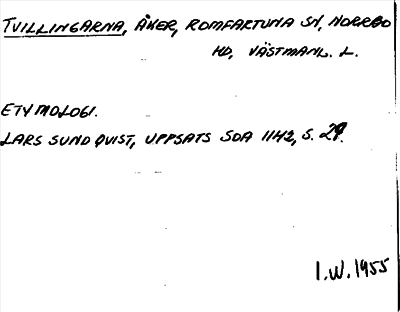 TVILLINGARNA, ÅKER, ROMFARTUNA SN, NORRBO
HD, VÄSTMANL. L.
ETYMOLOGI.
LARS SUNDQVIST, UPPSATS SDA 1142, S. 29.
I.W. 1955